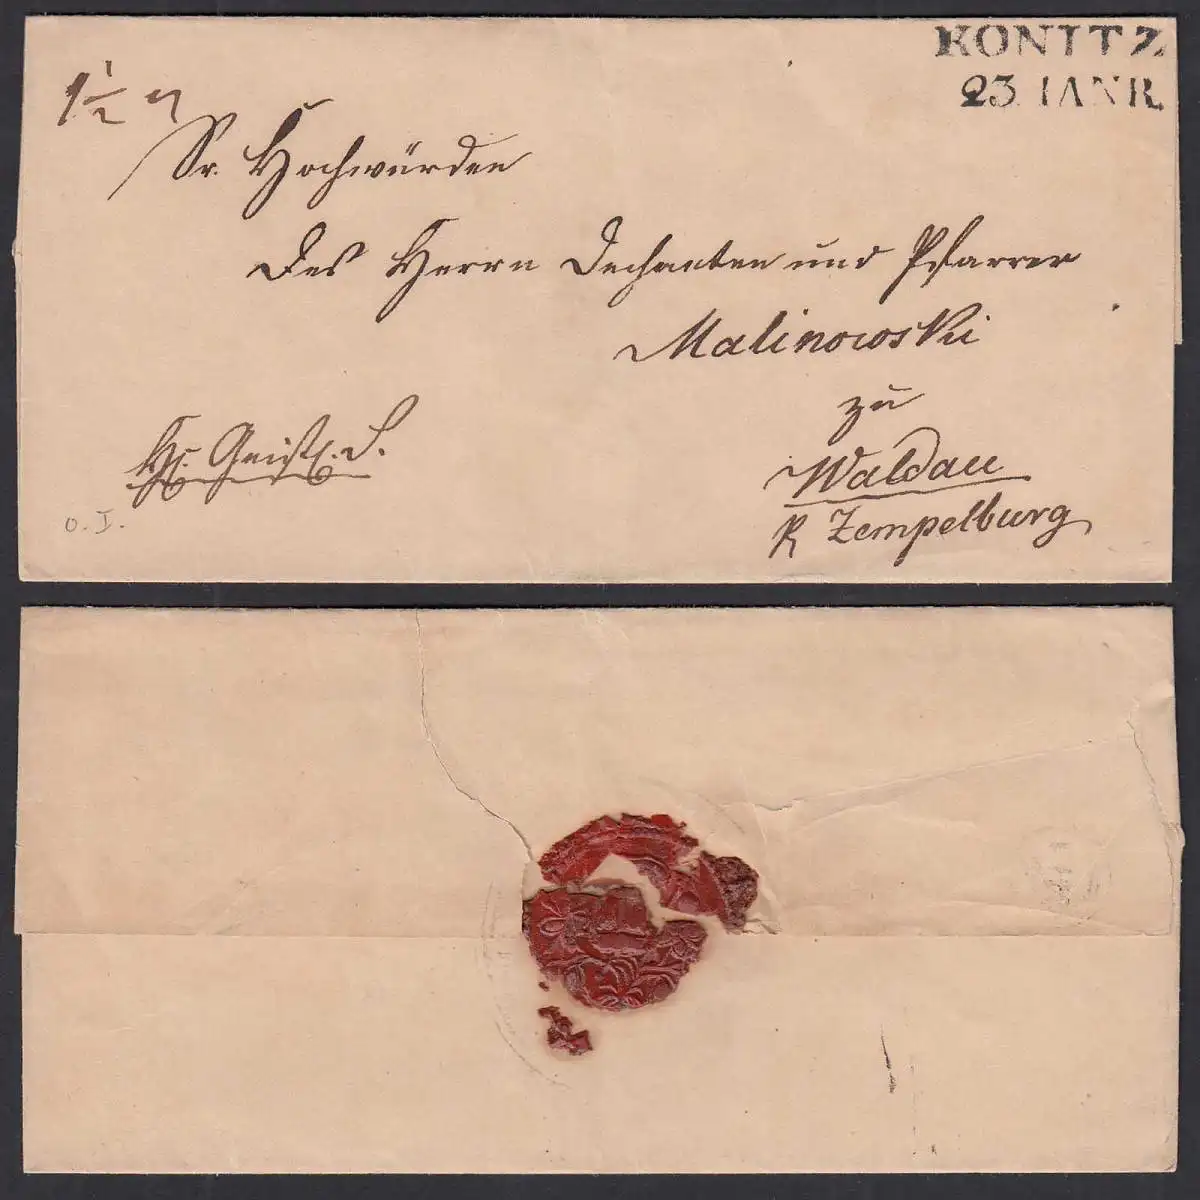 KONITZ
23. IANR.
1 1/2
Sr. Hochwürden
des Herrn Dechanten und Pfarrer
Malinowski
zu
Waldau
Zempelburg
Geistl. S.
o. I.